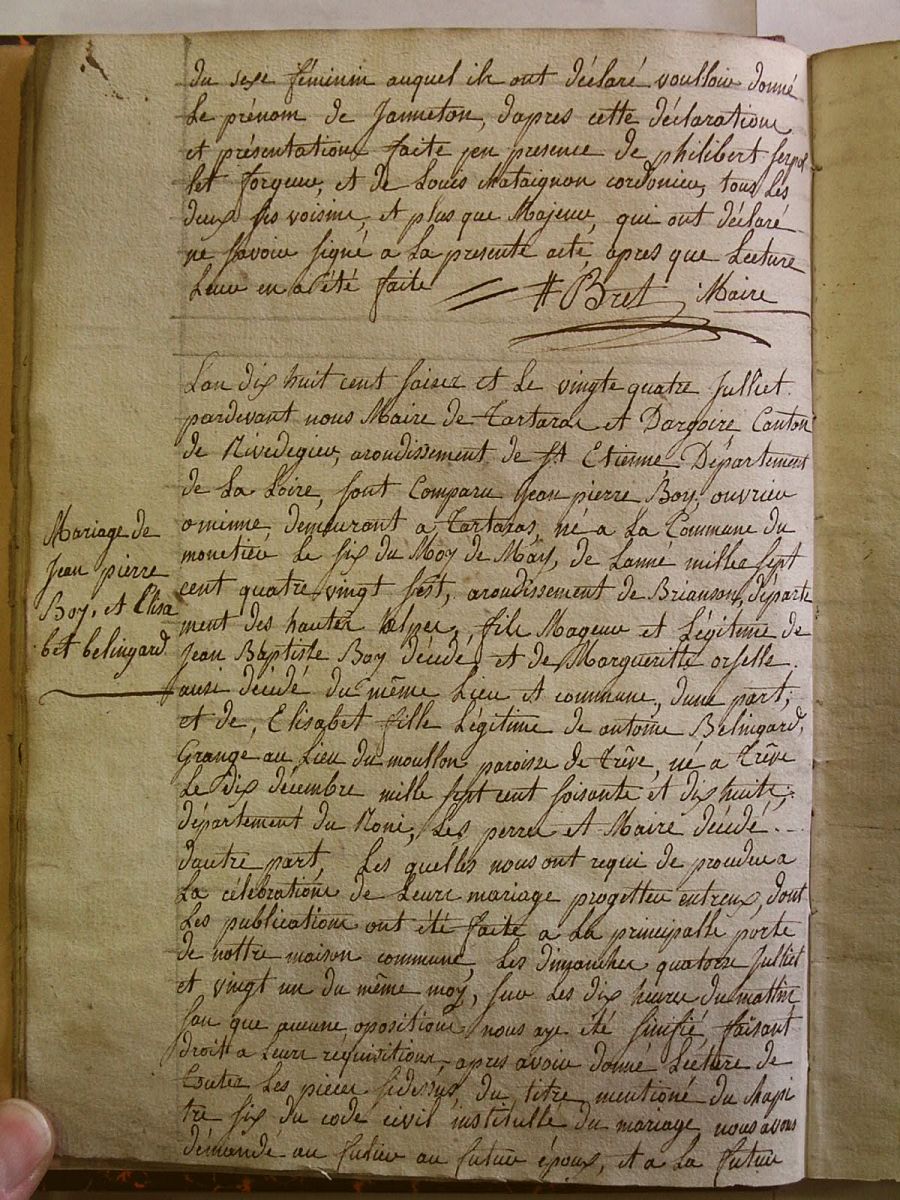 du sexe féminin auquel ils ont déclaré voulloir donné
Le prénom de Janneton, dapres cette déclaration
et présentation faite en presence de philibert Serpol
let forgeur, et de Louis Mataignon cordonier, tous les
deux ses voisins, et plus que Majeur, qui ont déclaré
ne savoir signé a La presente acte, apres que Lecture
Leur en a été faite
Bret Maire
L'an dix huit cent saise et Le vingte quatre Julliet
pardevant nous Maire de Tartaras et Dargoire Canton
de Rivedegier, arondissement de St Etienne Département
de La Loire, sont Comparu Jean pierre Boy, ouvrier
o minne, demeurant a Tartaras, né a La Commune du
monetier Le six du Moy de Mars, de Lanné milles sept
cent quatre vingt sept, arondissement de Brianson, départe
ment des hautes alpes, fils Mageur et Légitime de
Jean Baptiste Boy décidé, et de Margueritte orselle
aussi décidé du même Lieu et commune, dune part,
et de, Elisabet fille Légitime de antoine Belingard,
Granger au Lieu du moullon paroisse de Trêve, né a Trêve
Le Dix décembre mille sept cent soisante et dix huite,
département du Rone, Les perre et Maire décidé
dautre part, Les quelles nous ont requi de proceder a
La célébration de Leurs mariage progetter entreux, dont
Les publications ont été faite a La principalle porte
de nottre maison commune, Les dimanches quatorse Julliet
et vingt un du même moy, sur Les dix heure du mattin
san que aucune oposition nous aye été sinifié, faisant
droit a Leurs réquisition, apres avoir donné Lecture de
toutes Les pieces sidessus, du titre mentioné du chapi
tre six du code civil institullé du mariage, nous avons
démandé au futur au futur époux, et a La futur
Mariage de
Jean pierre
Boy, et Elisa
bet belingard